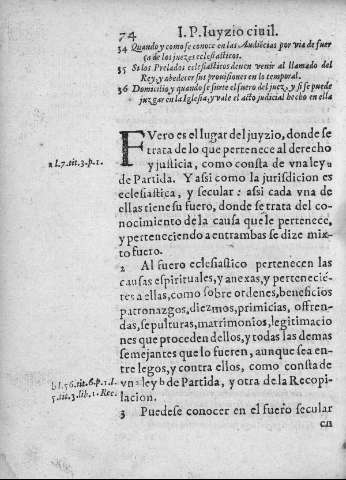 74 I.P. Iuyzio ciuil.
34 Quando y como se conoce en las Audiẽcias por via de fuer
ça de los juezes eclesiasticos.
35 Si los Prelados eclesiasticos deuen venir al llamado del
Rey, y abedecer sus prouisiones en lo temporal.
36 Domicilio, y quando se surte el fuero del juez, y si se puede
juzgar en la Iglesia, y vale el acto judicial hecho en ella
FVero es el lugar del juyzio, donde se
trata de lo que pertenece al derecho
a l.7. tit.3.p.1.
y justicia, como consta de vna ley a
de Partida. Y asi como la jurisdicion es
eclesiastica, y secular: assi cada vna de
ellas tiene su fuero, donde se trata del co-
nocimiento de la causa que le pertenece,
y perteneciendo a entrambas se dize mix-
to fuero.
2 Al fuero eclesiastico pertenecen las
causas espirituales, y anexas, y pertenecié-
tes a ellas, como sobre ordenes, beneficios
patronazgos, diezmos, primicias, offren-
das, sepulturas, matrimonios, legitimacio
nes que proceden dellos, y todas las demas
semejantes que lo fueren, aunque sea en-
tre legos, y contra ellos, como consta de
b l.56. tit.6.p.1.l.
vna ley b de Partida, y otra de la Recopi-
5.tit.3.lib.1.Rec.
lacion.
3 Puedese conocer en el fuero secular
en